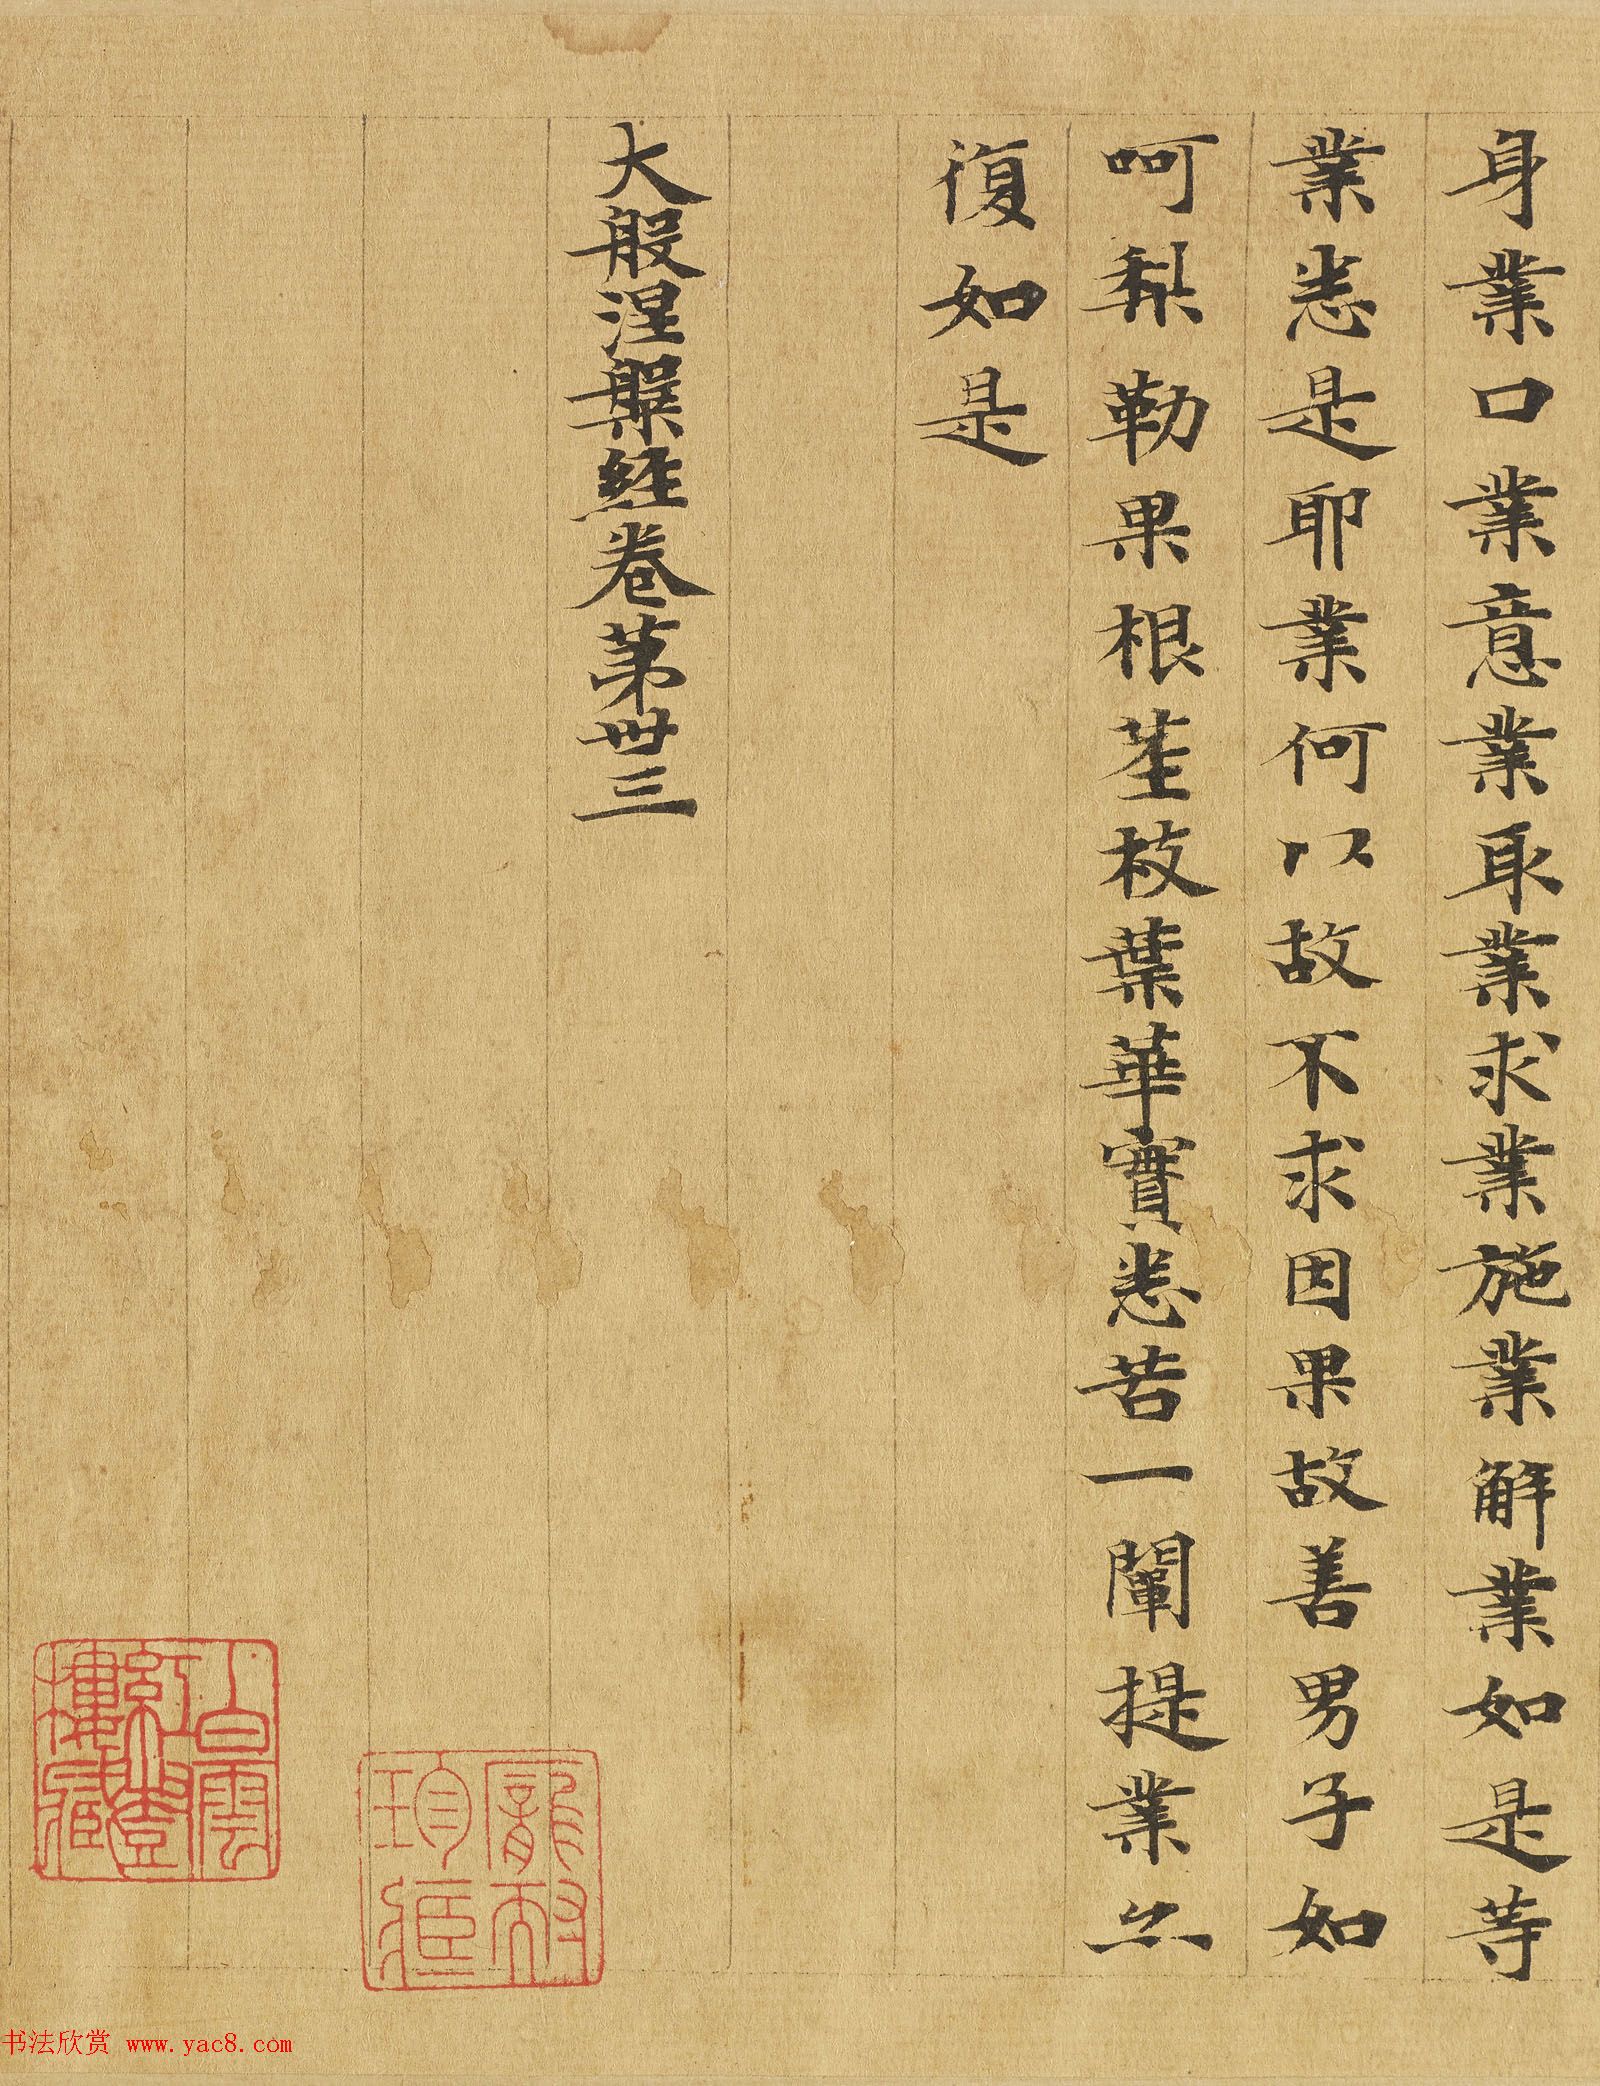 身業口業意業取業求業施業解業如是等
業悉是耶業何以故不求因果故善男子如
呵梨勒果根莖枝葉華實悉苦一闡提業亦
復如是
大般涅槃經卷第卅三
龍友
珍藏
小白雲
紅豆
樓藏
书法欣赏 www.yac8.com